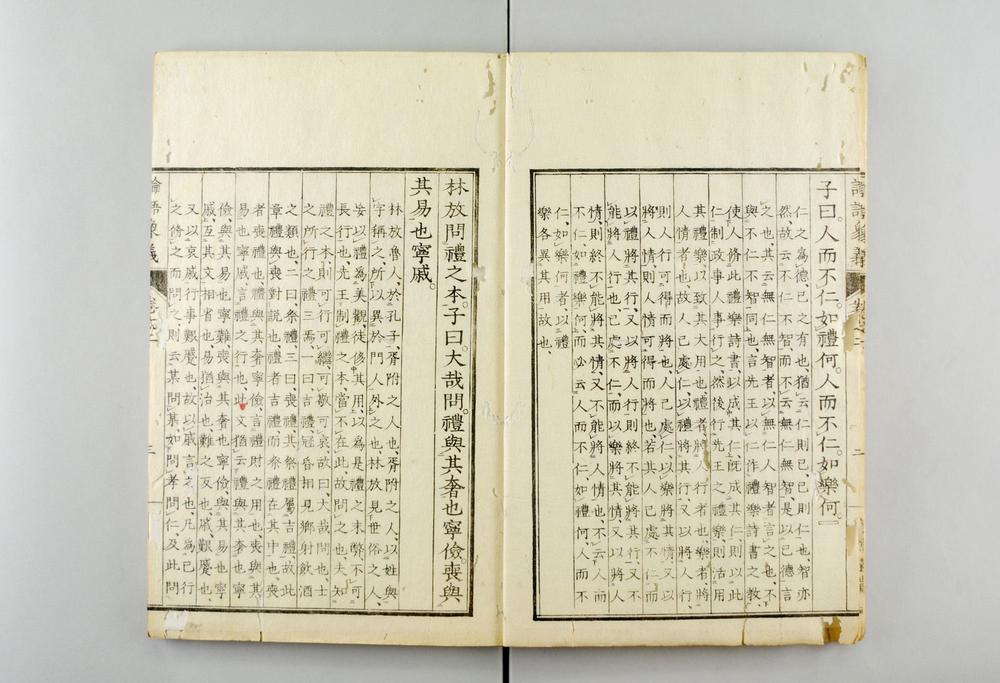 子曰。人而不仁。如禮何。人而不仁。如樂何。
仁之爲德、己之有也、猶云仁則已、已則仁也、智亦
然、故云不仁不智、而不云無仁無智、是以已德言
之也、其云無仁無智者、以無仁人智者言之也、不
與不仁不智同也、言先王以仁作禮樂詩書之教、
使人脩此禮樂詩書、以成其仁、既成其仁、則以此
仁制政事人事行之、然後行先王之禮樂、則活用
其禮樂、以致其大用也、禮者、將人行者也、樂者、將
人情者也、故人已處仁、以禮將其行、又以將人行、
則人行可得而將也、人已處仁、以樂將其情、又以
將人情、則人情可得而將也、若其人已處不仁、而
以禮將其行、又以將人行、則終不能將其行、又不
能將人行也、已處不仁、而以樂將其情、又以將人
情、則終不能將其情、又不能將人情也、不云人而
不仁、如禮樂何、而必云人而不仁如禮何、人而不
仁如樂何者、以禮
樂各異其用故也、
林放問禮之本。子曰。大哉問。禮與其奢也寧儉。喪與
其易也寧戚。
林放魯人、於孔子、胥附之人也、胥附之人、以姓與
字稱之、所以異於門人外之也、林放見世俗之人、
妄以禮爲美觀、徒侈其用、以爲是禮之末弊、不可
長行也、先王制禮之本、當不在此、故問之也、夫知
禮之本、則可行可繼、可敬可哀、故曰、大哉問也、士
之所行之禮三焉、一曰吉禮、冠昏相見鄉射飲酒
之類也、二曰祭禮、三曰喪禮、其祭禮屬吉禮、故此
章禮與喪對說也、禮者吉禮、而祭禮在其中也、喪
者喪禮也、禮與其奢寧儉、言禮財之用也、喪與其
易也寧戚、言禮之行也、此文猶云禮與其奢也寧
儉、與其易也寧難、喪與其奢也寧儉、與其易也寧
戚、互其文相省也、易猶治也、難之反也、戚、艱蹙也、
又以哀戚行事艱蹙也、故以戚言之也、凡爲已行
之脩之而問之、則云某問某、如問孝問仁、及此問